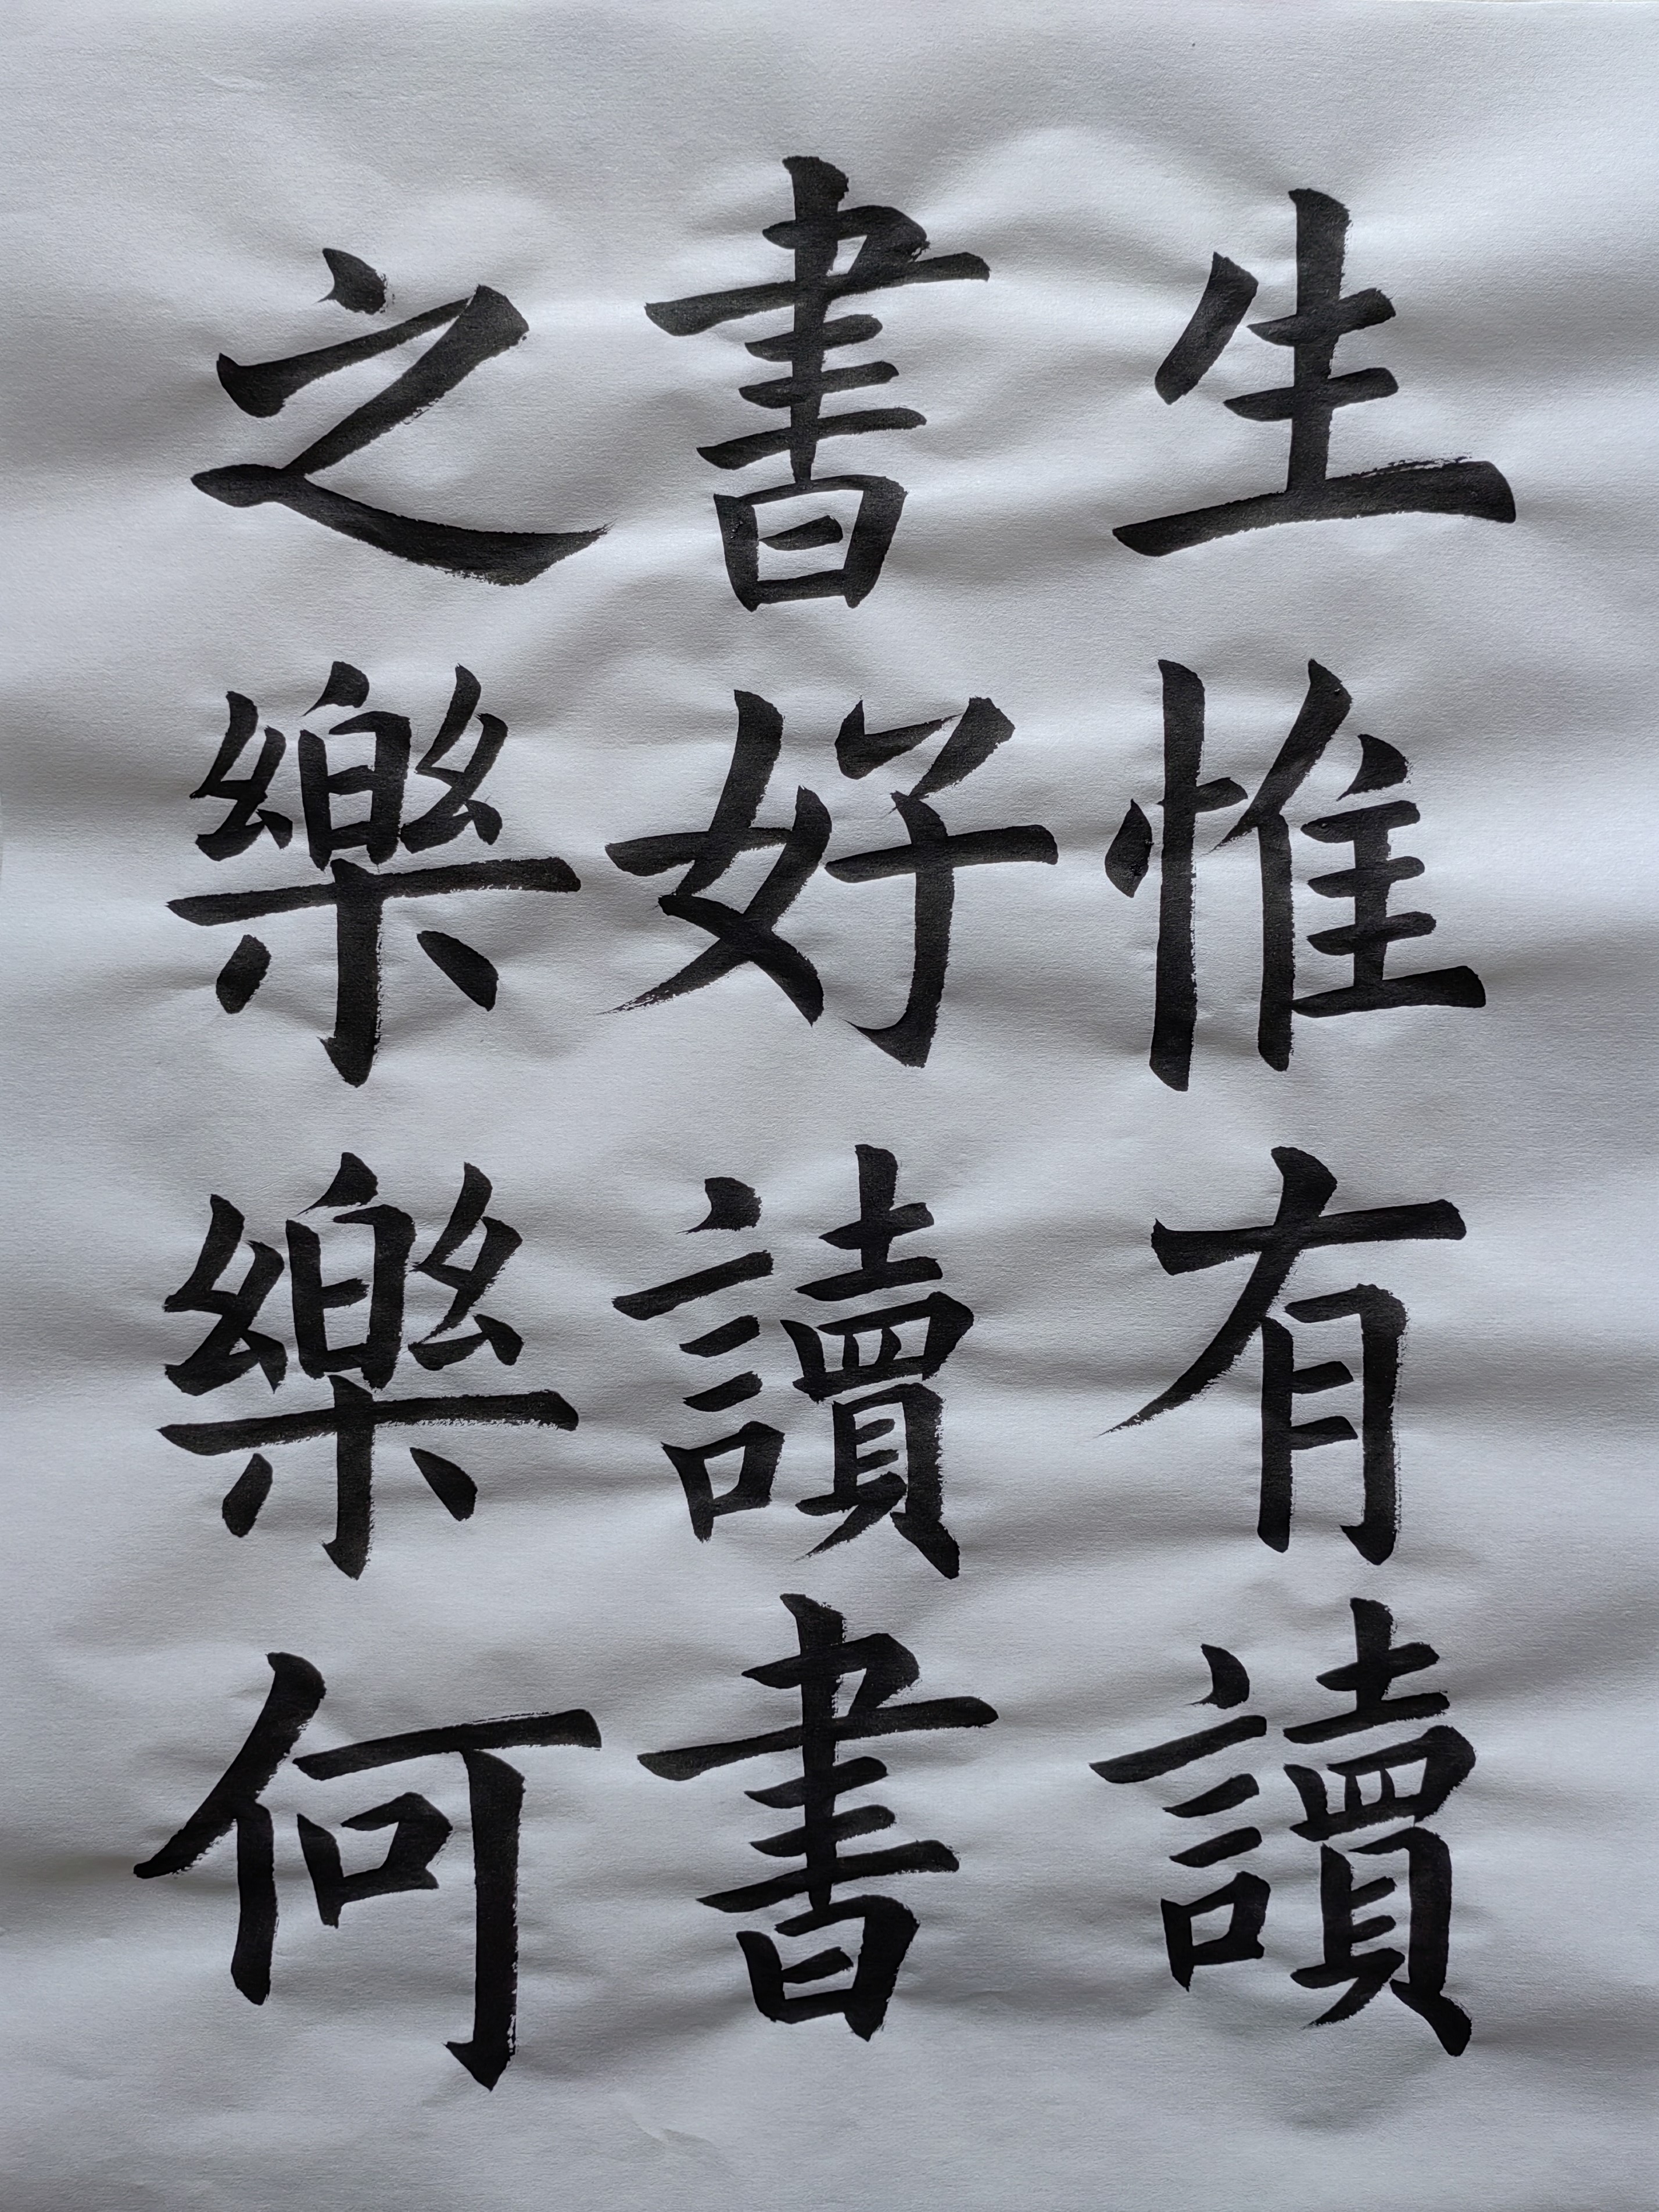 生惟有讀
書好讀書
之樂樂何